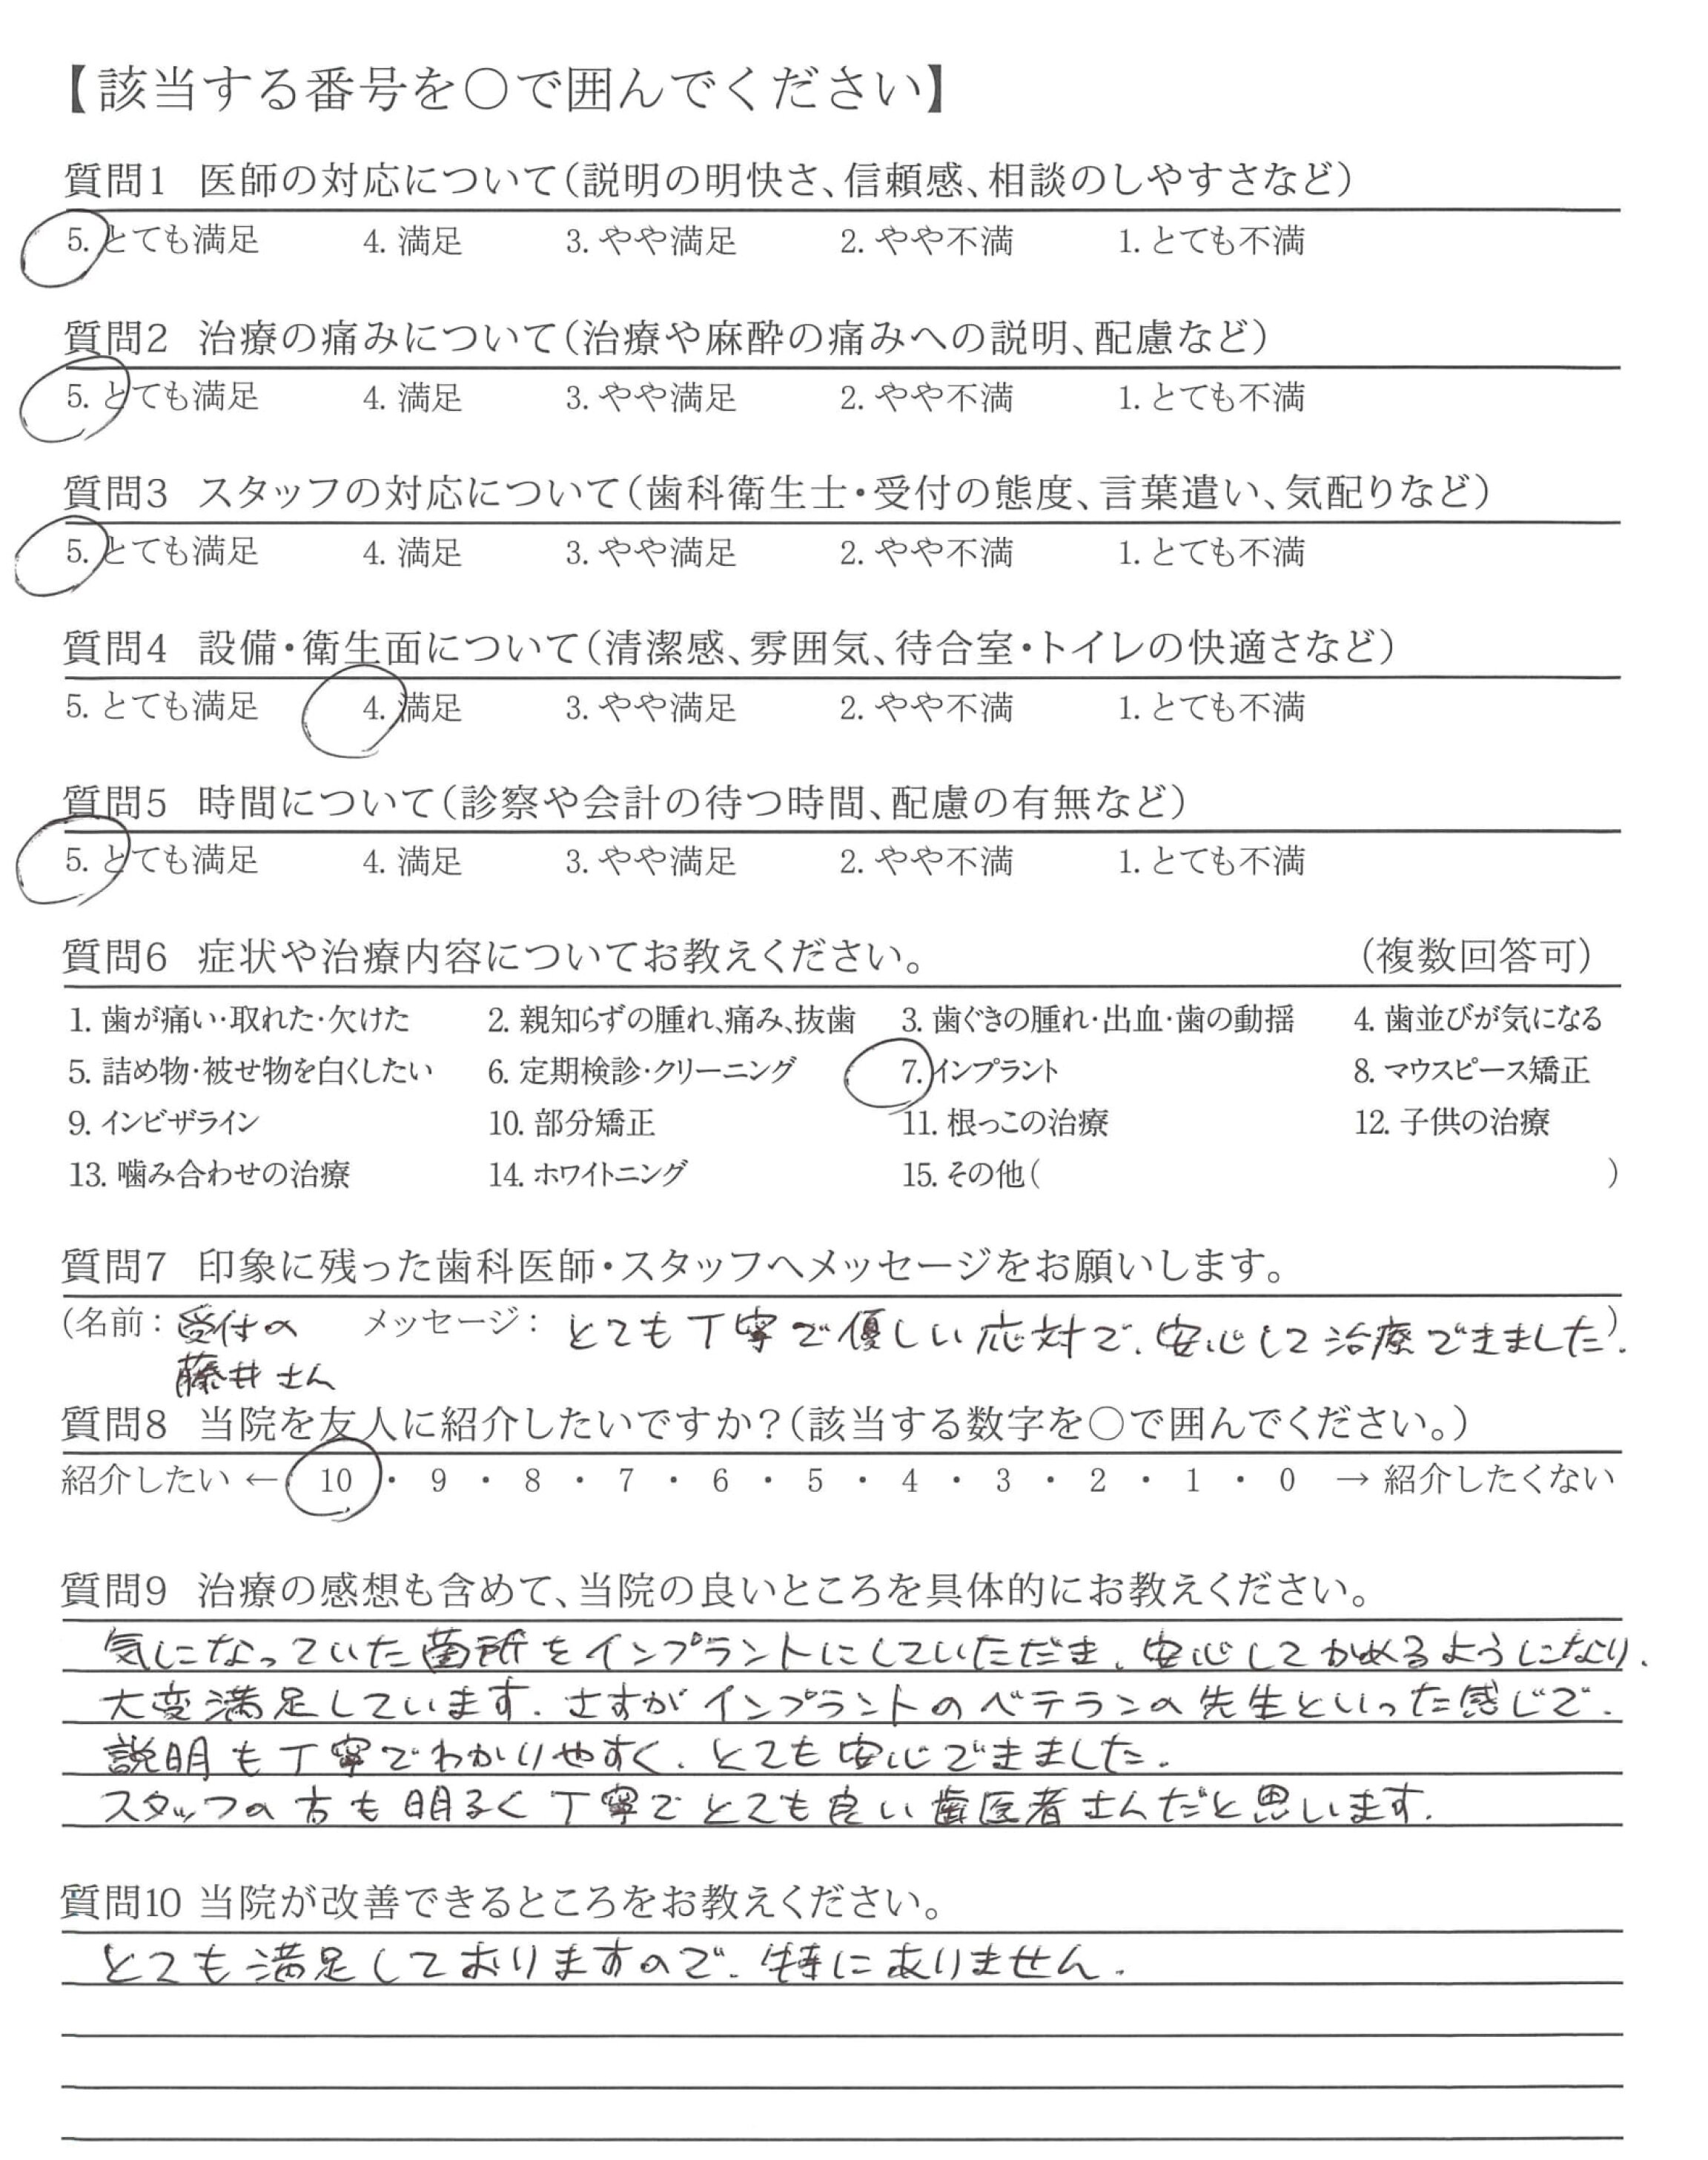 【該当する番号を〇で囲んでください】
質問1 医師の対応について（説明の明快さ、信頼感、相談のしやすさなど）
5. とても満足 4. 満足 3. やや満足 2. やや不満 1. とても不満
質問2 治療の痛みについて（治療や麻酔の痛みへの説明、配慮など）
5. とても満足 4. 満足 3. やや満足 2. やや不満 1. とても不満
質問3 スタッフの対応について（歯科衛生士・受付の態度、言葉遣い、気配りなど）
5. とても満足 4. 満足 3. やや満足 2. やや不満 1. とても不満
質問4 設備・衛生面について（清潔感、雰囲気、待合室・トイレの快適さなど）
5. とても満足 4. 満足 3. やや満足 2. やや不満 1. とても不満
質問5 時間について（診察や会計の待つ時間、配慮の有無など）
5. とても満足 4. 満足 3. やや満足 2. やや不満 1. とても不満
質問6 症状や治療内容についてお教えください。 （複数回答可）
1. 歯が痛い・取れた・欠けた 2. 親知らずの腫れ、痛み、抜歯 3. 歯ぐきの腫れ・出血・歯の動揺 4. 歯並びが気になる
5. 詰め物・被せ物を白くしたい 6. 定期検診・クリーニング 7. インプラント 8. マウスピース矯正
9. インビザライン 10. 部分矯正 11. 根っこの治療 12. 子供の治療
13. 噛み合わせの治療 14. ホワイトニング 15. その他（ ）
質問7 印象に残った歯科医師・スタッフへメッセージをお願いします。
（名前：受付の メッセージ：とても丁寧で優しい応対で、安心して治療できました。）
藤井さん
質問8 当院を友人に紹介したいですか？（該当する数字を〇で囲んでください。）
紹介したい ← 10 ・ 9 ・ 8 ・ 7 ・ 6 ・ 5 ・ 4 ・ 3 ・ 2 ・ 1 ・ 0 → 紹介したくない
質問9 治療の感想も含めて、当院の良いところを具体的にお教えください。
気になっていた箇所をインプラントにしていただき、安心してかめるようになり、
大変満足しています。さすがインプラントのベテランの先生といった感じで、
説明も丁寧でわかりやすく、とても安心できました。
スタッフの方も明るく丁寧でとても良い歯医者さんだと思います。
質問10 当院が改善できるところをお教えください。
とても満足しておりますので、特にありません。